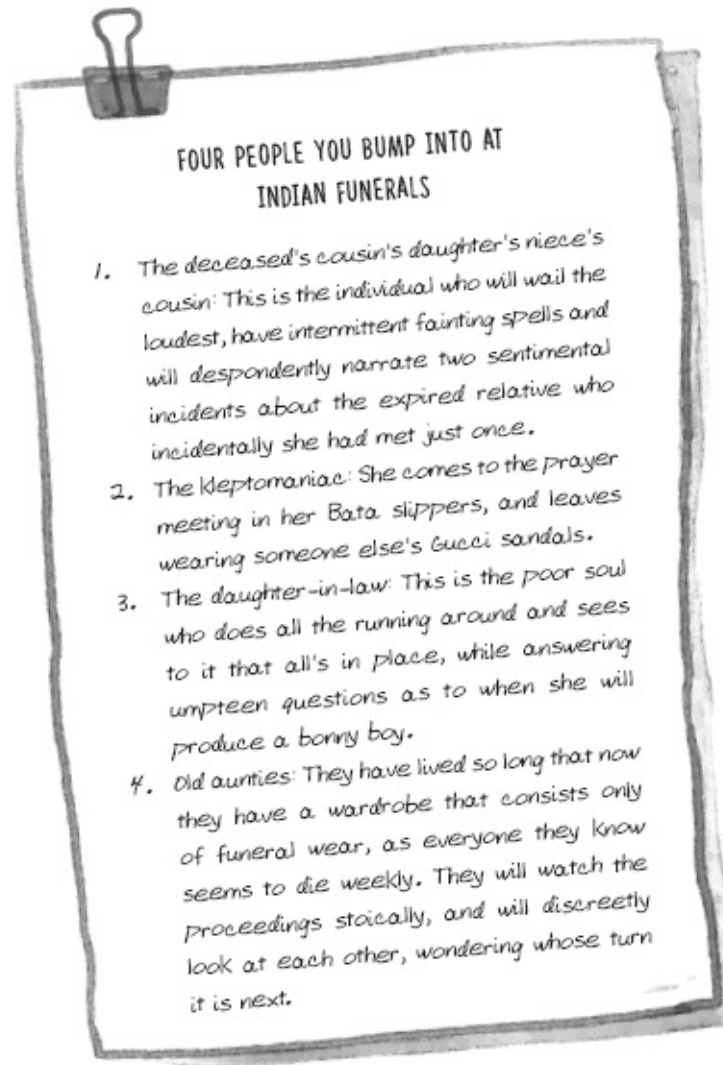 FOUR PEOPLE YOU BUMP INTO AT
INDIAN FUNERALS
1. The deceased's cousin's daughter's niece's
cousin: This is the individual who will wail the
loudest, have intermittent fainting spells and
will despondently narrate two sentimental
incidents about the expired relative who
incidentally she had met just once.
2. The kleptomaniac: She comes to the prayer
meeting in her Bata slippers, and leaves
wearing someone else's Gucci sandals.
3. The daughter-in-law: This is the poor soul
who does all the running around and sees
to it that all's in place, while answering
umpteen questions as to when she will
produce a bonny boy.
4. Old aunties: They have lived so long that now
they have a wardrobe that consists only
of funeral wear, as everyone they know
seems to die weekly. They will watch the
proceedings stoically, and will discreetly
look at each other, wondering whose turn
it is next.